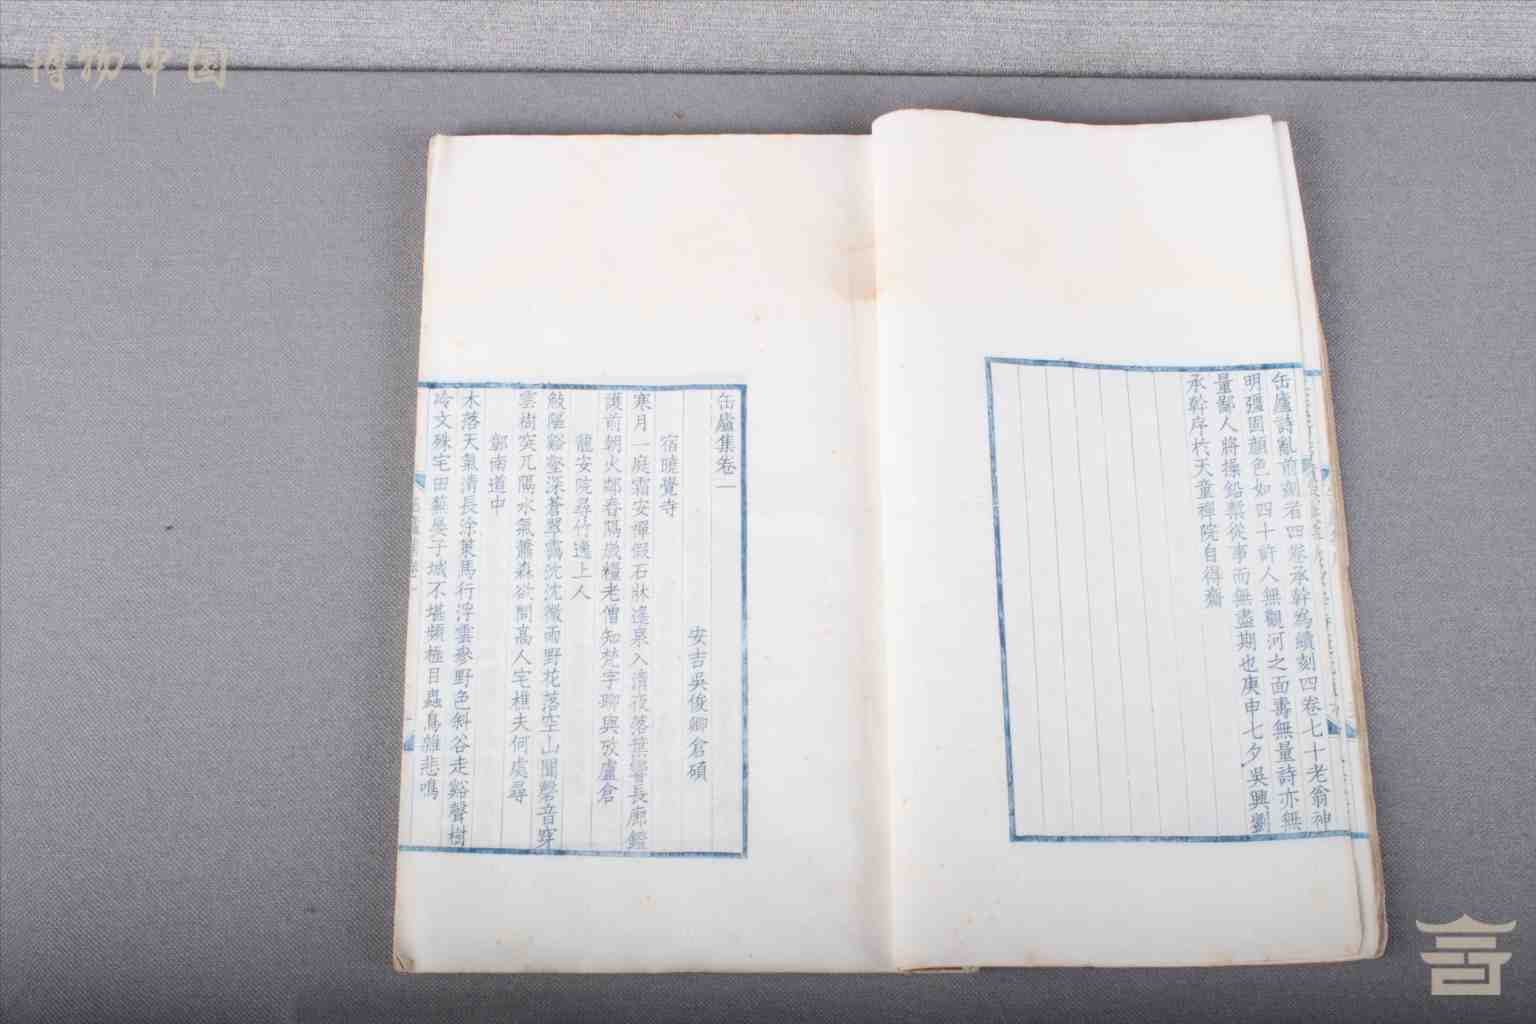 博物中国
缶廬詩亂前刻者四卷承幹為續刻四卷七十老翁神
明彊固顏色如四十許人無觀河之面壽無量詩亦無
量鄙人將操鉛槧從事而無盡期也庚申七夕吳興劉
承幹序於天童禪院自得齋
缶廬集卷一
安吉吳俊卿倉碩
宿曉覺寺
寒月一庭霜安禪假石牀逢泉入清夜落葉響長廊鐙
護前朝火鄰舂隔歲糧老僧知梵字聊與攷盧倉
龍安院尋竹逸上人
攲隖谿壑深蒼翠靄沈沈微雨野花落空山聞磬音穿
雲樹突兀隔水氣蕭森欲問高人宅樵夫何處尋
鄣南道中
木落天氣清長涂策馬行浮雲參野色斜谷走谿聲樹
冷文殊宅田蕪晏子城不堪頻極目蟲鳥雜悲鳴